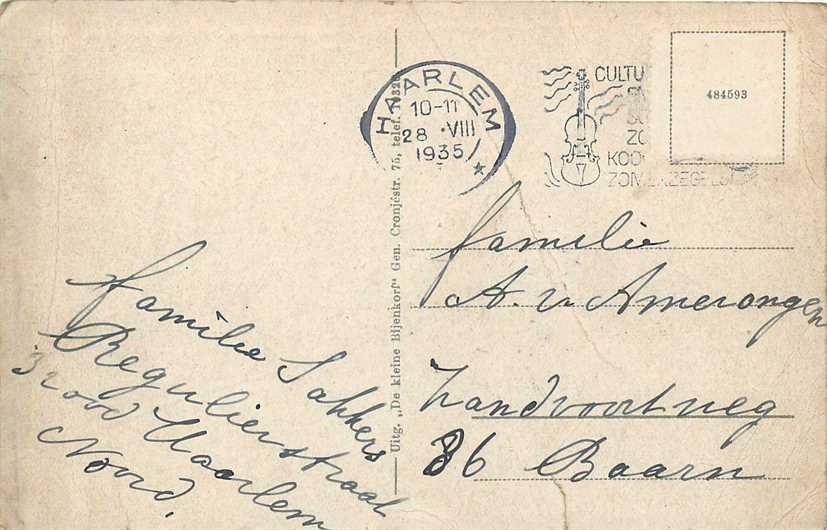 HAARLEM
10-11
28 ·VIII
1935
CULTU
ZO
KOO
ZOMERZEGELS
484593
Uitg. „De kleine Bijenkorf" Gen. Cronjéstr. 75, telef.
familie
A. v. Amerongen
Zandvoortweg
86 Baarn
familie Sakkers
Regulierstraat
32 ood Haarlem
Noord.